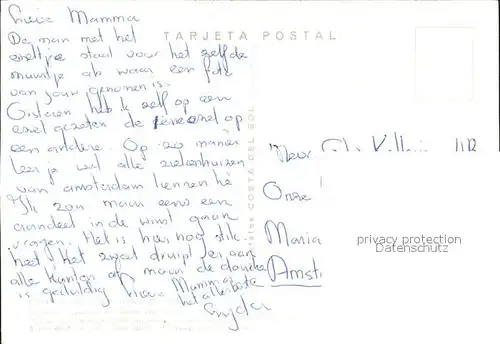 Lieve Mamma
TARJETA POSTAL
De man met het
ezeltje staat voor het zelfde
muurtje als waar een foto
van jouw genomen is.
Gisteren heb ik zelf op een
ezel gezeten de ene ezel op
een andere. Op zo'n manier
leer je wel alle ziekenhuizen
van amsterdam kennen hè
Ik zou maar eens een
aandeel in de winst gaan
vragen. Het is hier nog stik
heet het zweet druipt er aan
alle kanten af maar de douche
is geduldig Lieve Mamma
het allerbeste
COSTA DEL SOL
Mevr
Onze
Maria
Amst
privacy protection
Datenschutz